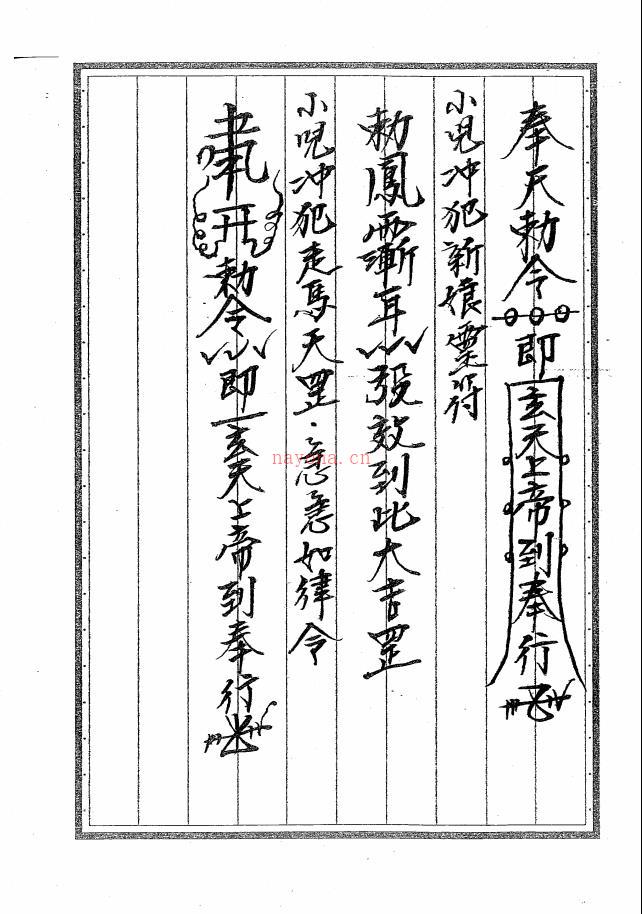 奉天勅令即玄天上帝到奉行
小兒冲犯新娘
勅鳳
發效到此大吉罡
小呪冲犯走馬天罡急急如律令
勅令即玄天上帝到奉行
nayona.cn